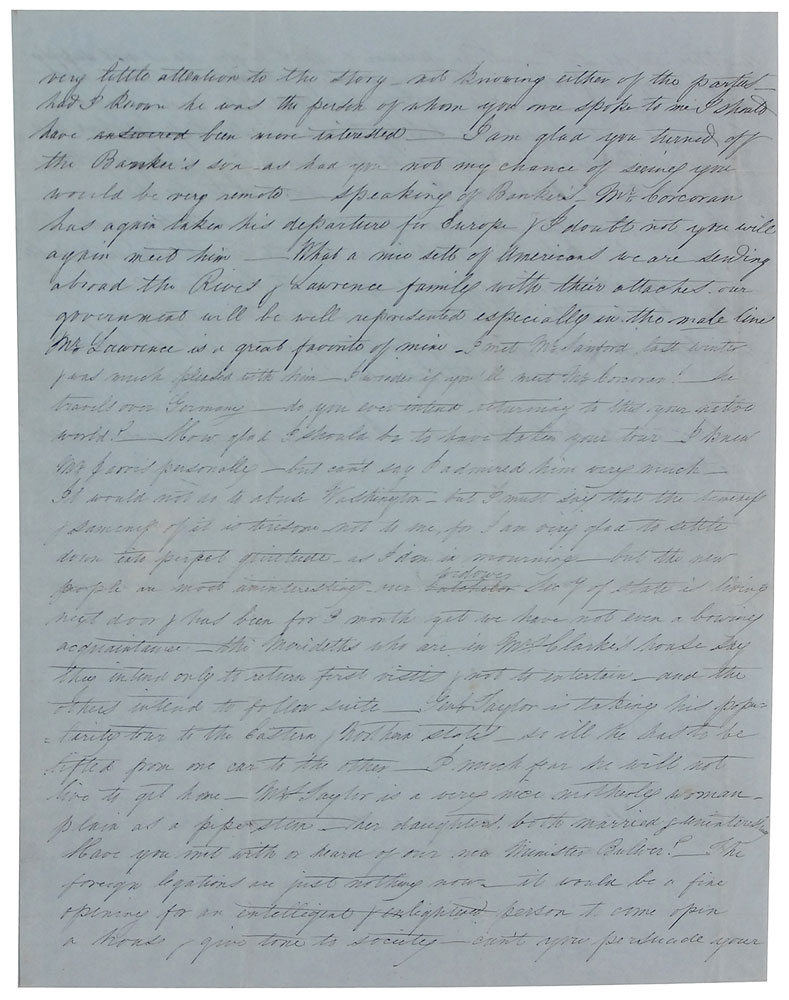 very little attention to the story - not knowing either of the parties -
had I known he was the person of whom you once spoke to me I should
have answered been more interested — I am glad you turned off
the Banker's son - as had you not my chance of seeing you
would be very remote — speaking of Bankers - Mr. Corcoran
has again taken his departure for Europe & I doubt not you will
again meet him — What a nice sett of Americans we are sending
abroad the Rives & Lawrence family with their attaches - our
government will be will represented especially in the male line
Mr. Lawrence is a great favorite of mine - I met Mr. Sanford last winter
& was much pleased with him - I wonder if you'll meet Mr. Corcoran! - he
travels over Germany - do you ever intend returning to this your native
world? — How glad I should be to have taken your tour - I knew
Mr. Jarvis personally - but can't say I admired him very much -
It would not do to abuse Washington - but I must say that the
& sameness of it is tiresome not to me, for I am very glad to settle
down into quietude - as I don in mourning - but the new
people are most uninteresting - our Secy of state is living
next door & has been for 1 month yet we have not even a bowing
acquaintance - the Merideths who are in Mrs. Clarke's house say
they intend only to return first visits & not to entertain - and the
others intend to follow suite - Genl. Taylor is taking his popu-
=larity tour to the Eastern & Northern states - so ill he has to be
lifted from one car to the other - I much fear he will not
live to get home - Mrs. Taylor is a very nice motherly woman -
plain as a pipe stem - her daughters both married &
Have you met with or heard of our new Minister Bulwer? - The
foreign legations are just nothing now - it would be a fine
opening for an intelligent & enlightened person to come open
a house & give tone to society - can't you persuade your